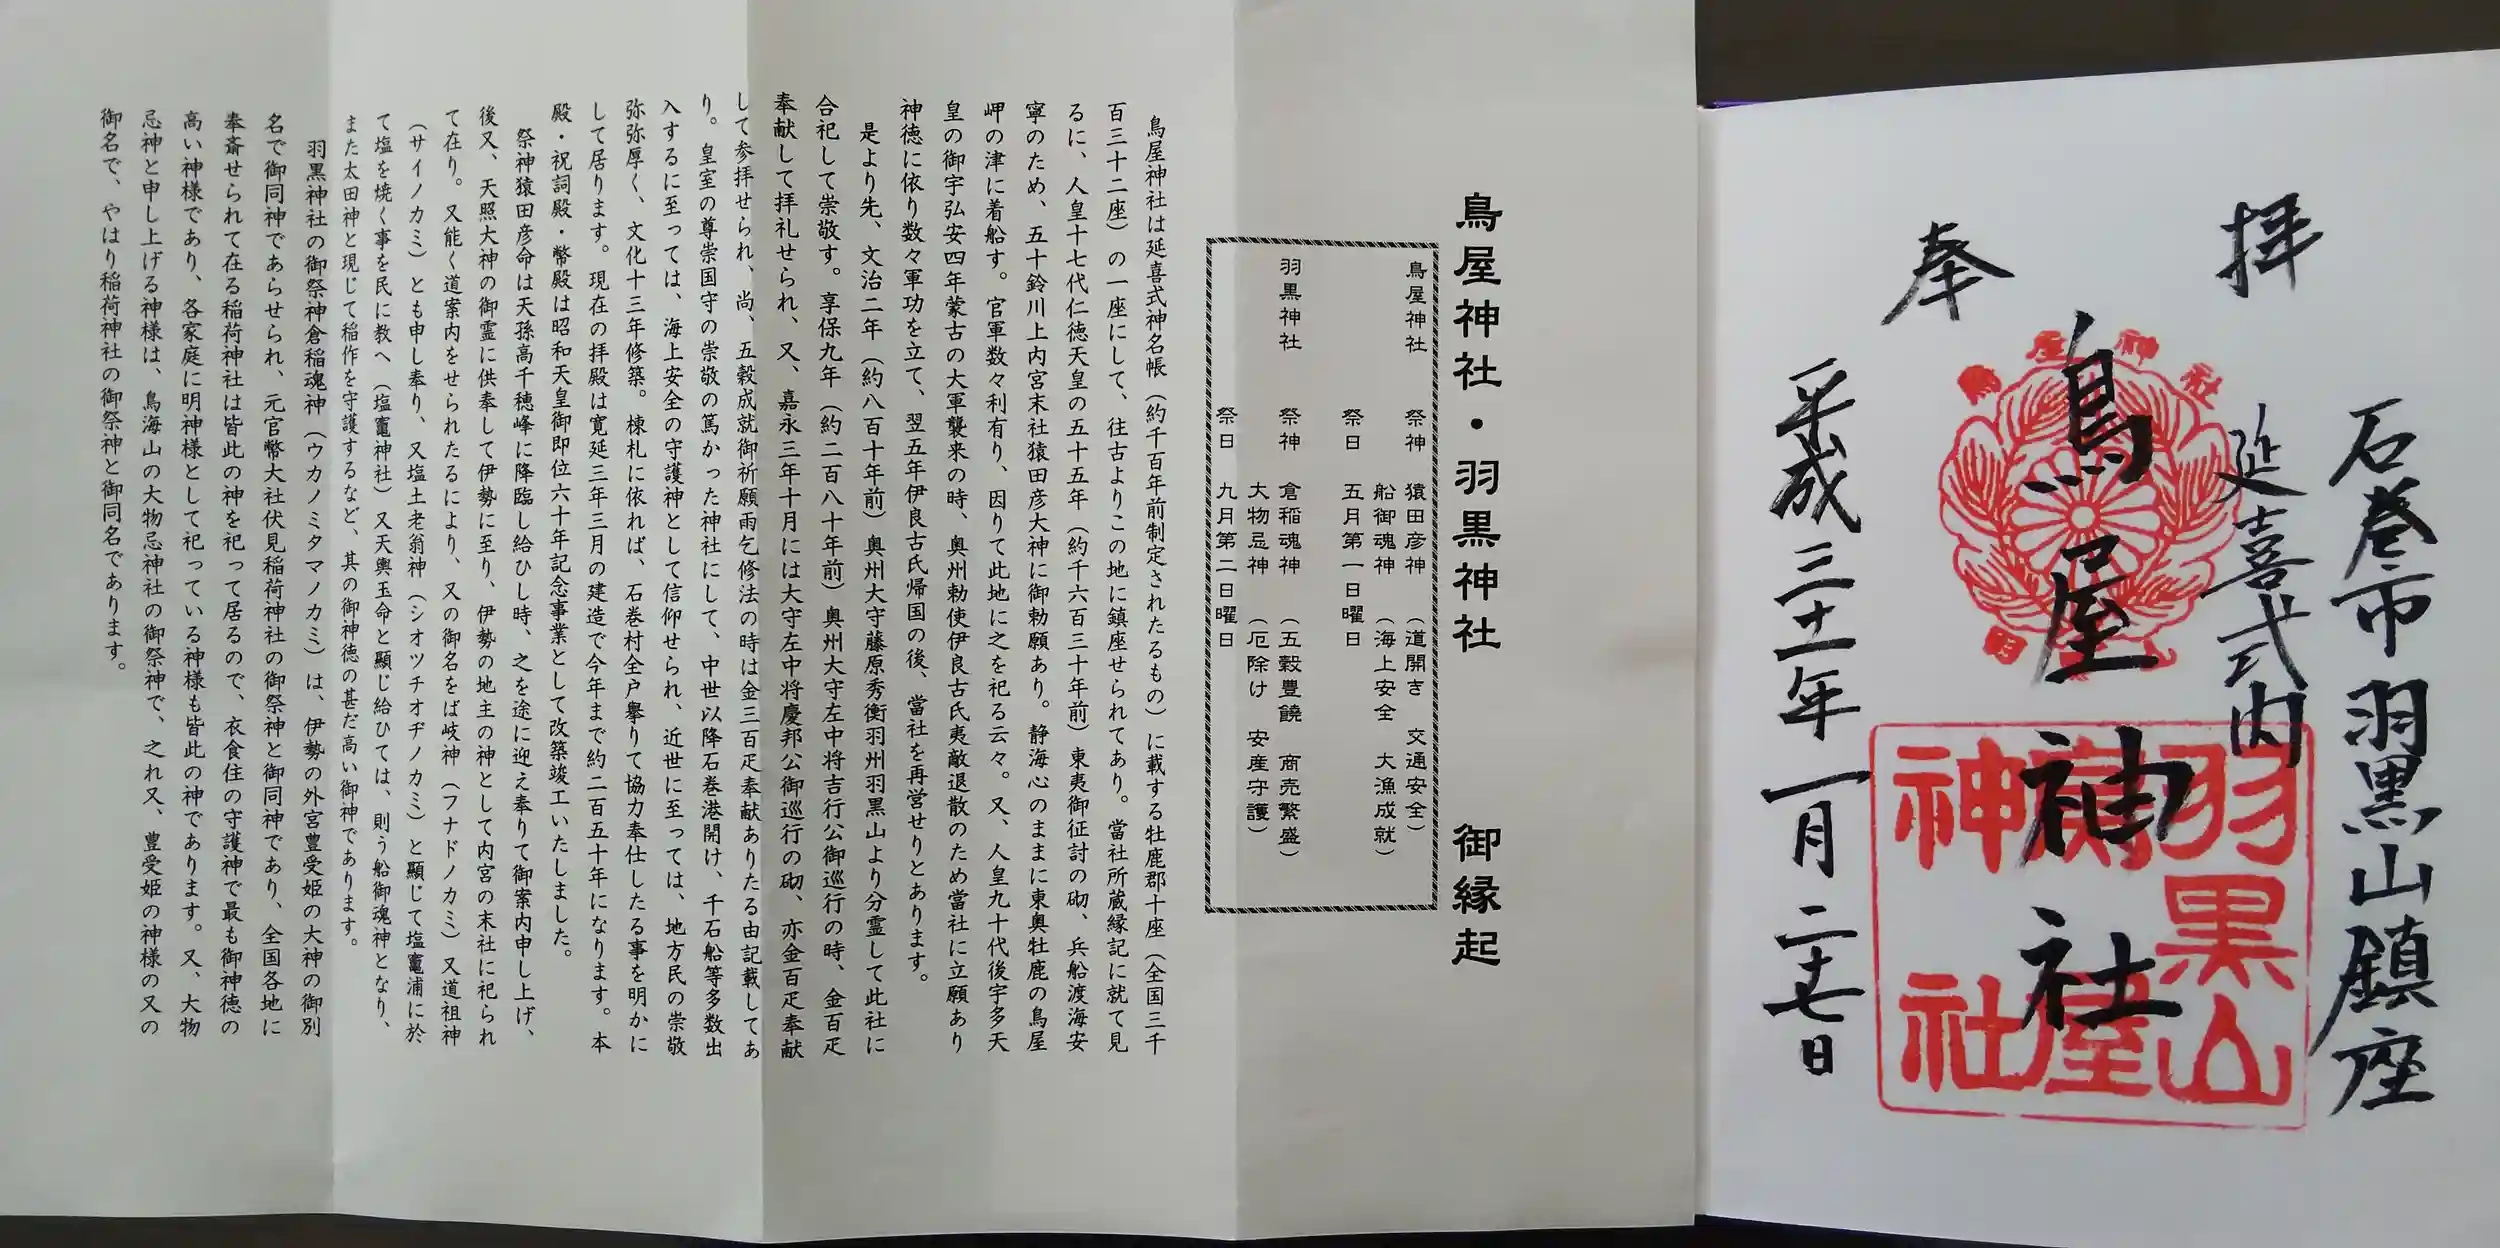 拝
奉
石巻市羽黒山鎮座
延喜式内
鳥屋神社
平成三十一年一月二十七日
鳥屋神社
羽黒山
鳥屋
神社
鳥屋神社・羽黒神社　御縁起
鳥屋神社　祭神　猿田彦神（道開き　交通安全）
船御魂神（海上安全　大漁成就）
祭日　五月第一日曜日
羽黒神社　祭神　倉稲魂神（五穀豊饒　商売繁盛）
大物忌神（厄除け　安産守護）
祭日　九月第二日曜日
鳥屋神社は延喜式神名帳（約千百年前制定されたるもの）に載する牡鹿郡十座（全国三千
百三十二座）の一座にして、往古よりこの地に鎮座せられてあり。當社所蔵縁記に就て見
るに、人皇十七代仁徳天皇の五十五年（約千六百三十年前）東夷御征討の砌、兵船渡海安
寧のため、五十鈴川上内宮末社猿田彦大神に御勅願あり。静海心のままに東奥牡鹿の鳥屋
岬の津に着船す。官軍数々利有り、因りて此地に之を祀る云々。又、人皇九十代後宇多天
皇の御宇弘安四年蒙古の大軍襲来の時、奥州勅使伊良古氏夷敵退散のため當社に立願あり
神徳に依り数々軍功を立て、翌五年伊良古氏帰国の後、當社を再営せりとあります。
是より先、文治二年（約八百十年前）奥州大守藤原秀衡羽州羽黒山より分霊して此社に
合祀して崇敬す。享保九年（約二百八十年前）奥州大守左中将吉行公御巡行の時、金百疋
奉献して拝礼せられ、又、嘉永三年十月には大守左中将慶邦公御巡行の砌、亦金百疋奉献
して参拝せられ、尚、五穀成就御祈願雨乞修法の時は金三百疋奉献ありたる由記載してあ
り。皇室の尊崇国守の崇敬の篤かった神社にして、中世以降石巻港開け、千石船等多数出
入するに至っては、海上安全の守護神として信仰せられ、近世に至っては、地方民の崇敬
弥弥厚く、文化十三年修築。棟札に依れば、石巻村全戸擧りて協力奉仕したる事を明かに
して居ります。現在の拝殿は寛延三年三月の建造で今年まで約二百五十年になります。本
殿・祝詞殿・幣殿は昭和天皇御即位六十年記念事業として改築竣工いたしました。
祭神猿田彦命は天孫高千穂峰に降臨し給ひし時、之を途に迎え奉りて御案内申し上げ、
後又、天照大神の御霊に供奉して伊勢に至り、伊勢の地主の神として内宮の末社に祀られ
て在り。又能く道案内をせられたるにより、又の御名をば岐神（フナドノカミ）又道祖神
（サイノカミ）とも申し奉り、又塩土老翁神（シオツチオヂノカミ）と顯じて塩竈浦に於
て塩を焼く事を民に教へ（塩竈神社）又天輿玉命と顯じ給ひては、則う船御魂神となり、
また太田神と現じて稲作を守護するなど、其の御神徳の甚だ高い御神であります。
羽黒神社の御祭神倉稲魂神（ウカノミタマノカミ）は、伊勢の外宮豊受姫の大神の御別
名で御同神であらせられ、元官幣大社伏見稲荷神社の御祭神と御同神であり、全国各地に
奉斎せられて在る稲荷神社は皆此の神を祀って居るので、衣食住の守護神で最も御神徳の
高い神様であり、各家庭に明神様として祀っている神様も皆此の神であります。又、大物
忌神と申し上げる神様は、鳥海山の大物忌神社の御祭神で、之れ又、豊受姫の神様の又の
御名で、やはり稲荷神社の御祭神と御同名であります。